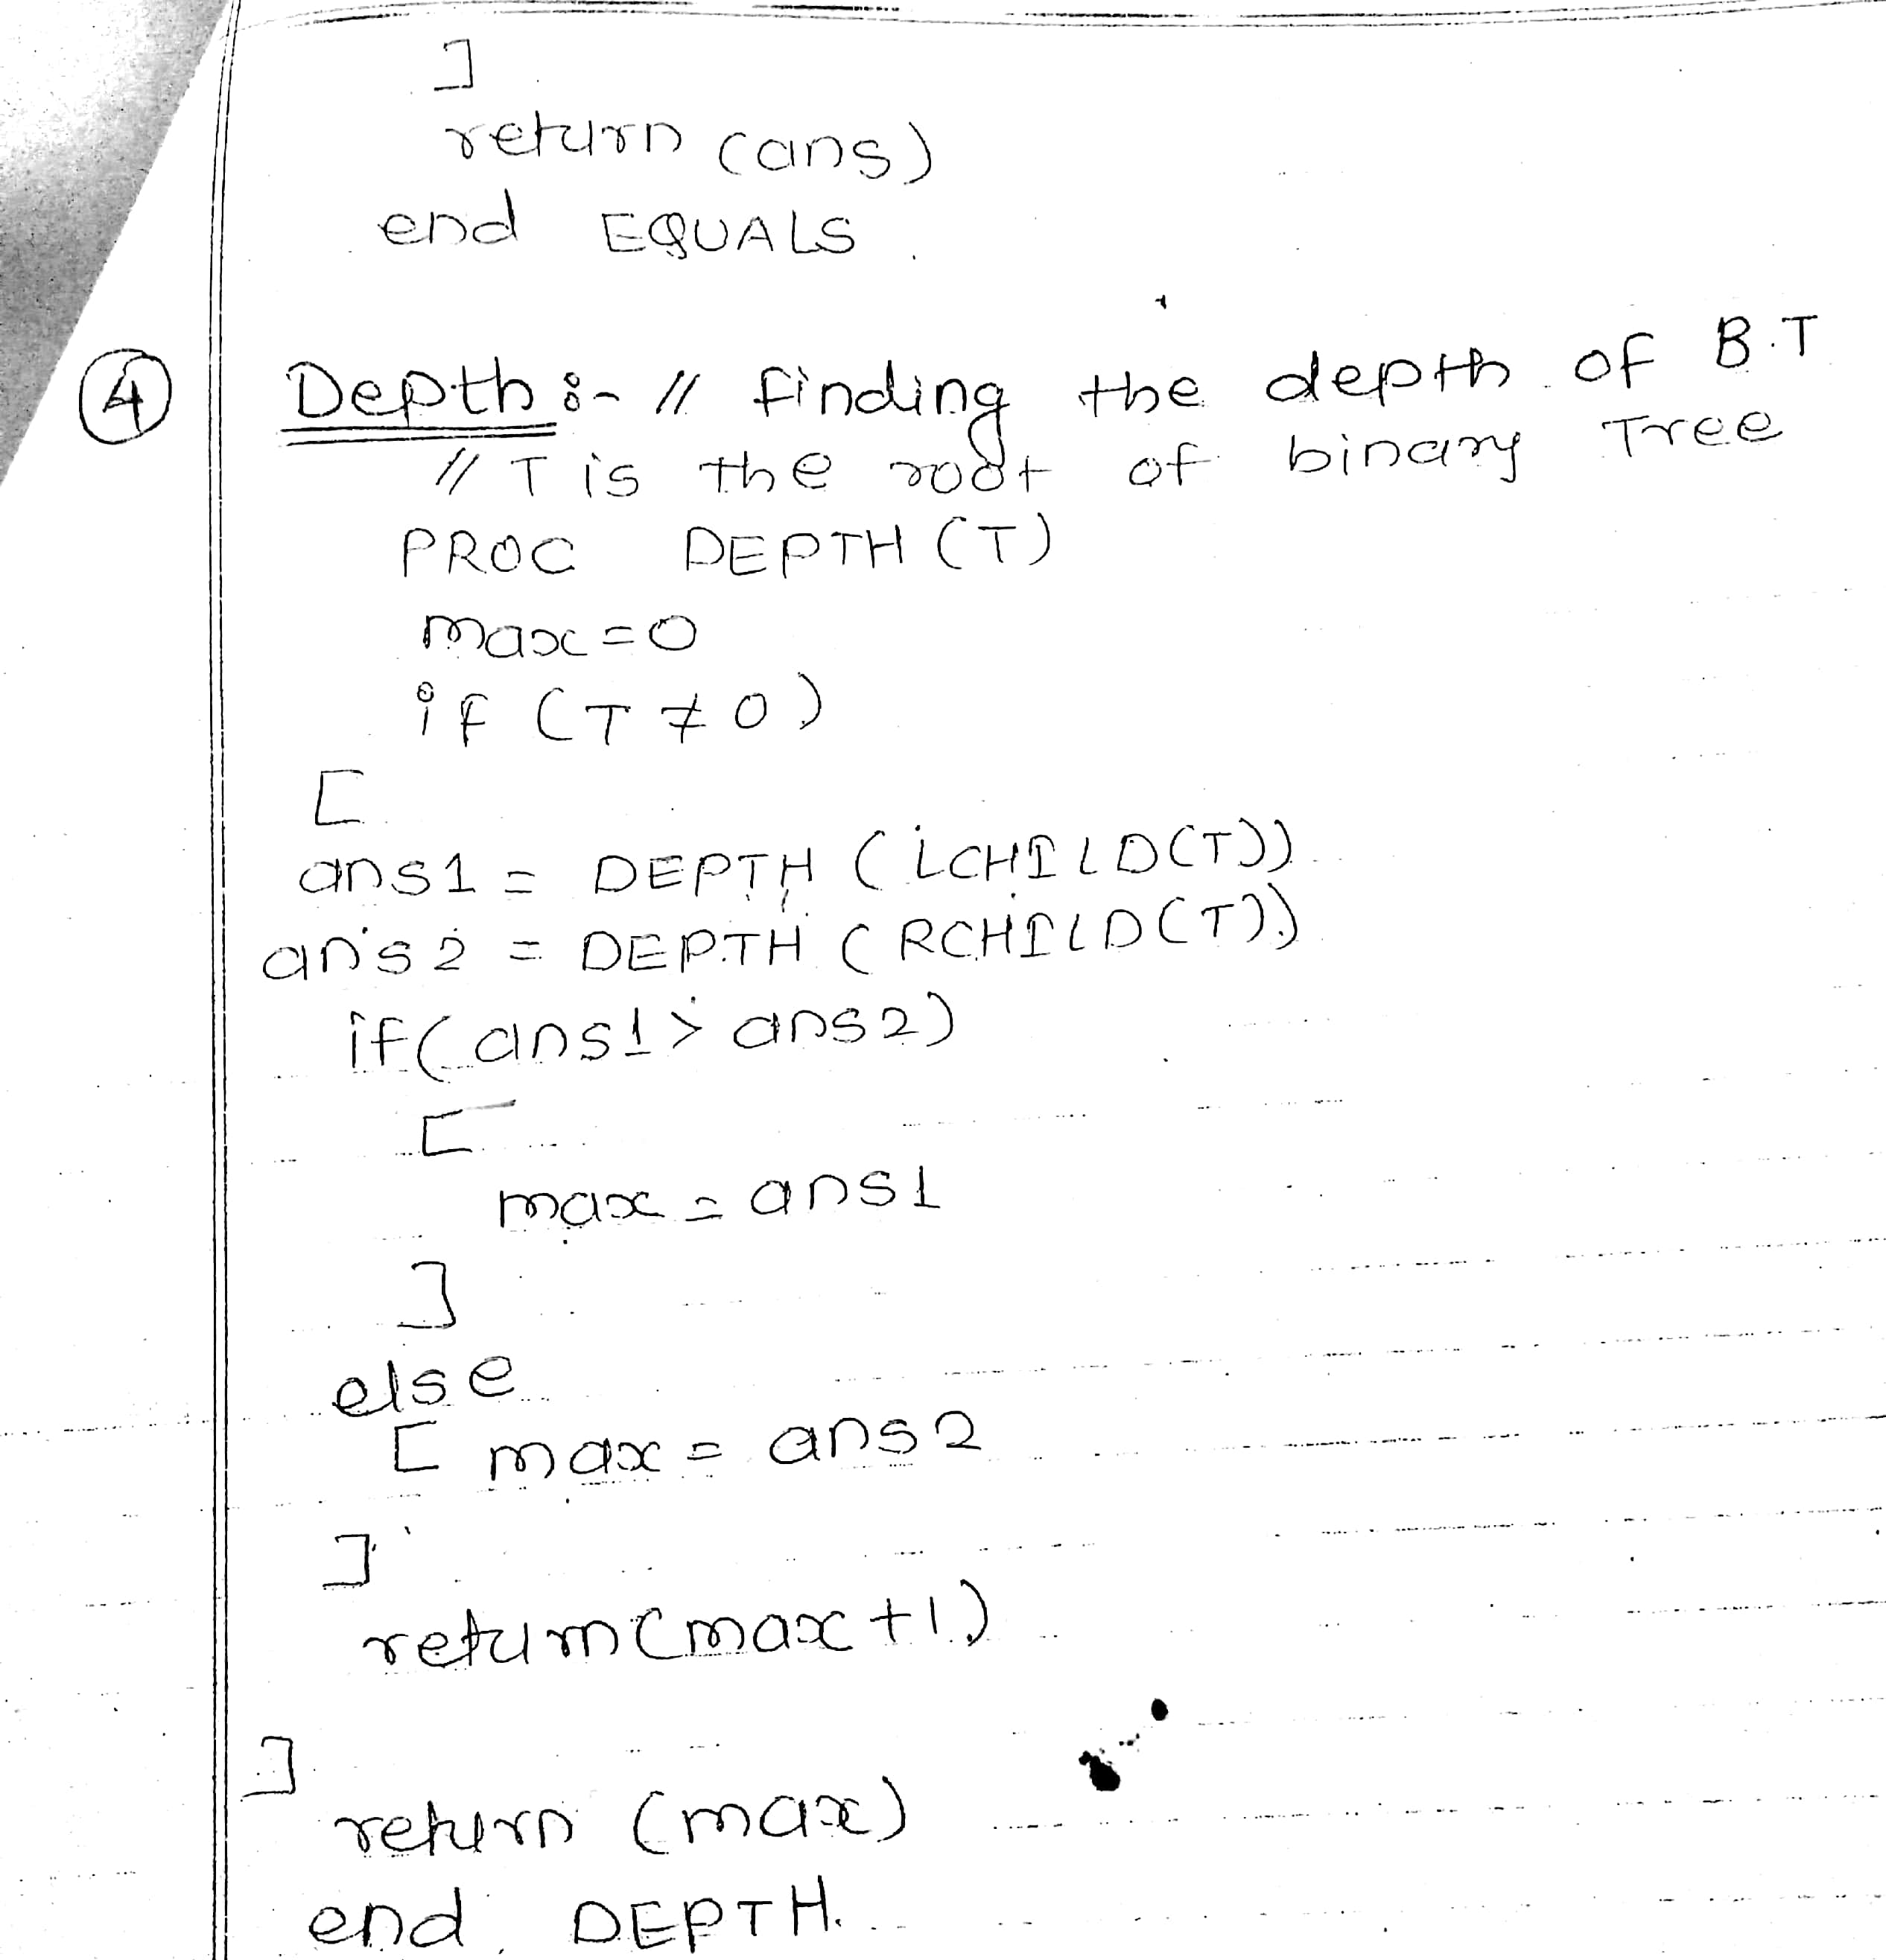 ]
return (ans)
end EQUALS
④ Depth :- // finding the depth of B.T
// T is the root of binary Tree
PROC DEPTH (T)
max = 0
if (T ≠ 0)
[
ans1 = DEPTH (LCHILD(T))
ans2 = DEPTH (RCHILD(T))
if (ans1 > ans2)
[
max = ans1
]
else
[ max = ans2
]
return (max +1)
]
return (max)
end DEPTH.